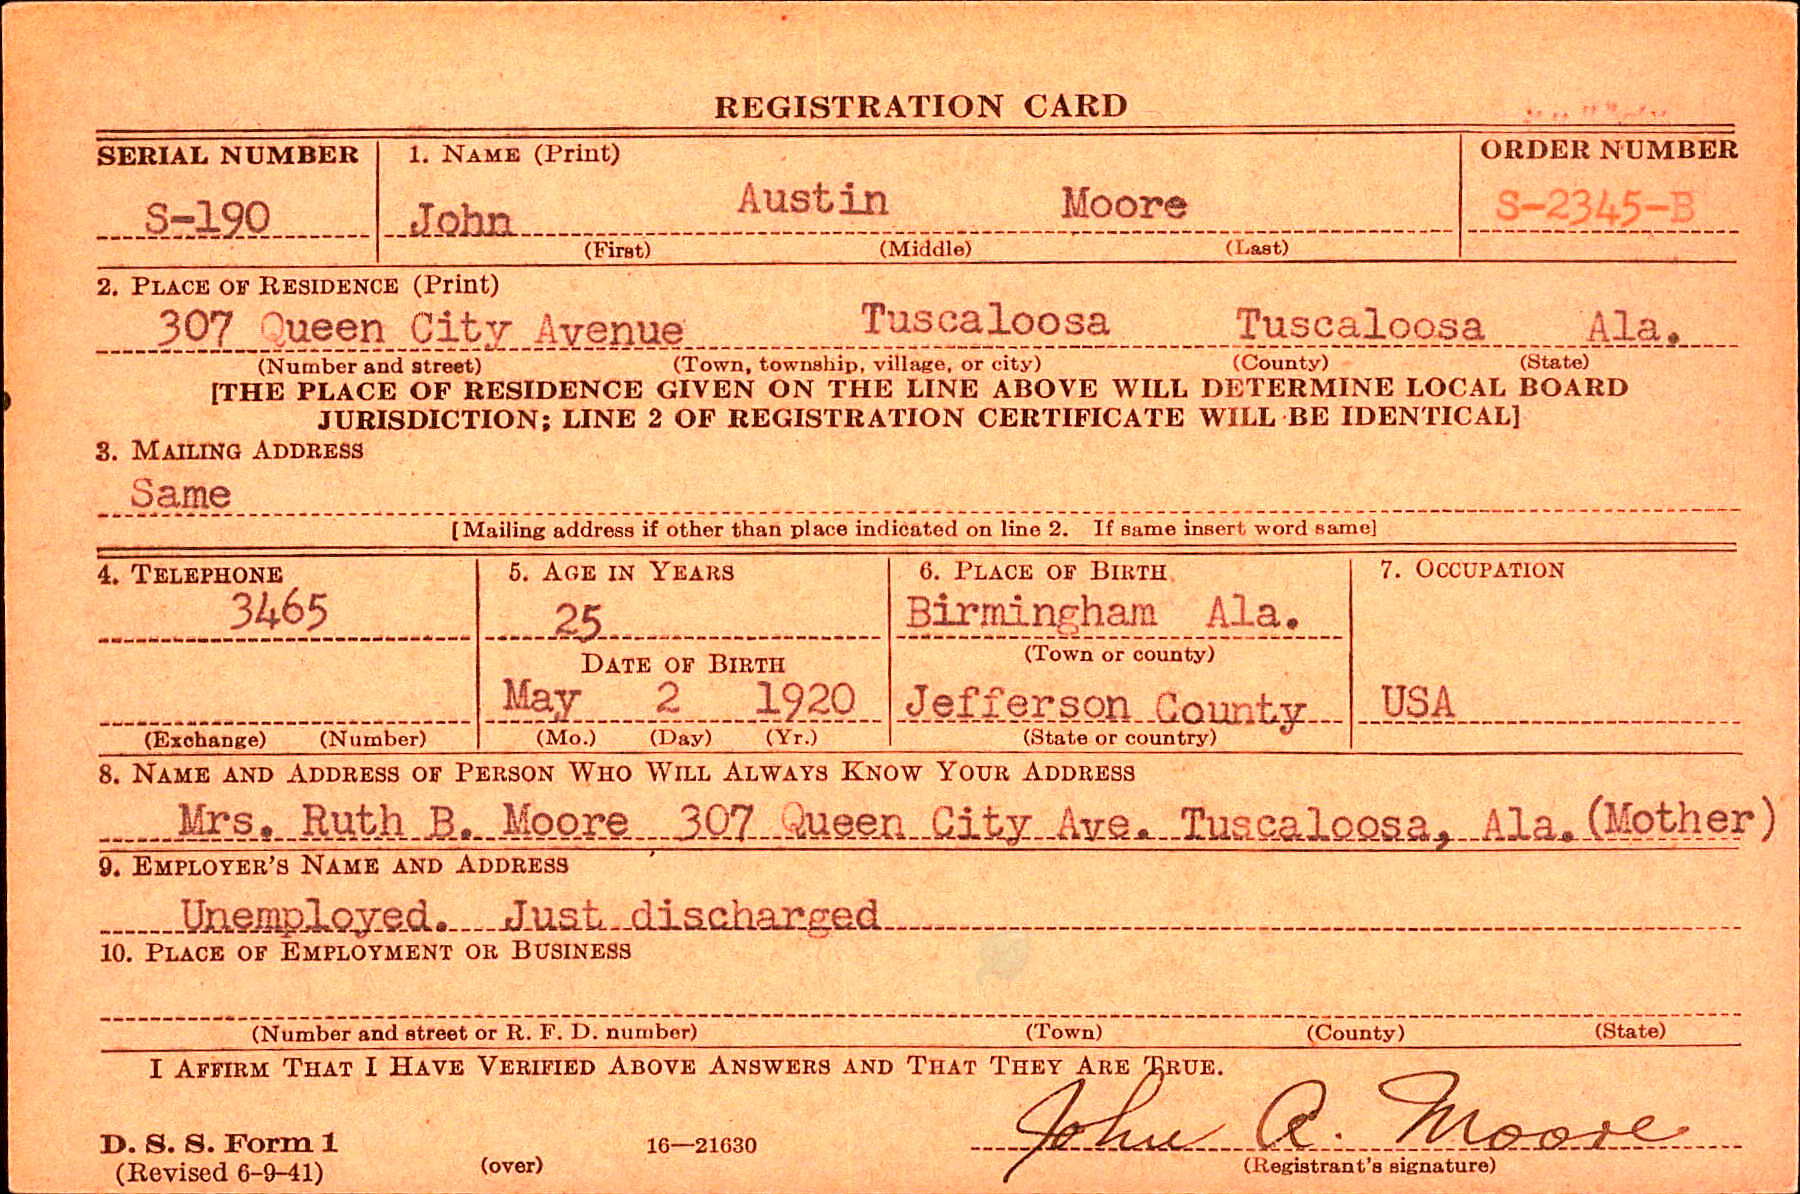 REGISTRATION CARD
SERIAL NUMBER 1. NAME (Print) ORDER NUMBER
S-190 John Austin Moore S-2345-B
(First) (Middle) (Last)
2. PLACE OF RESIDENCE (Print)
307 Queen City Avenue Tuscaloosa Tuscaloosa Ala.
(Number and street) (Town, township, village, or city) (County) (State)
[THE PLACE OF RESIDENCE GIVEN ON THE LINE ABOVE WILL DETERMINE LOCAL BOARD
JURISDICTION; LINE 2 OF REGISTRATION CERTIFICATE WILL BE IDENTICAL]
3. MAILING ADDRESS
Same
[Mailing address if other than place indicated on line 2. If same insert word same]
4. TELEPHONE 5. AGE IN YEARS 6. PLACE OF BIRTH 7. OCCUPATION
3465 25 Birmingham Ala.
DATE OF BIRTH (Town or county)
May 2 1920 Jefferson County USA
(Exchange) (Number) (Mo.) (Day) (Yr.) (State or country)
8. NAME AND ADDRESS OF PERSON WHO WILL ALWAYS KNOW YOUR ADDRESS
Mrs. Ruth B. Moore 307 Queen City Ave. Tuscaloosa, Ala. (Mother)
9. EMPLOYER'S NAME AND ADDRESS
Unemployed. Just discharged
10. PLACE OF EMPLOYMENT OR BUSINESS
(Number and street or R. F. D. number) (Town) (County) (State)
I AFFIRM THAT I HAVE VERIFIED ABOVE ANSWERS AND THAT THEY ARE TRUE.
John A. Moore
D. S. S. Form 1 16—21630
(Revised 6-9-41) (over) (Registrant's signature)